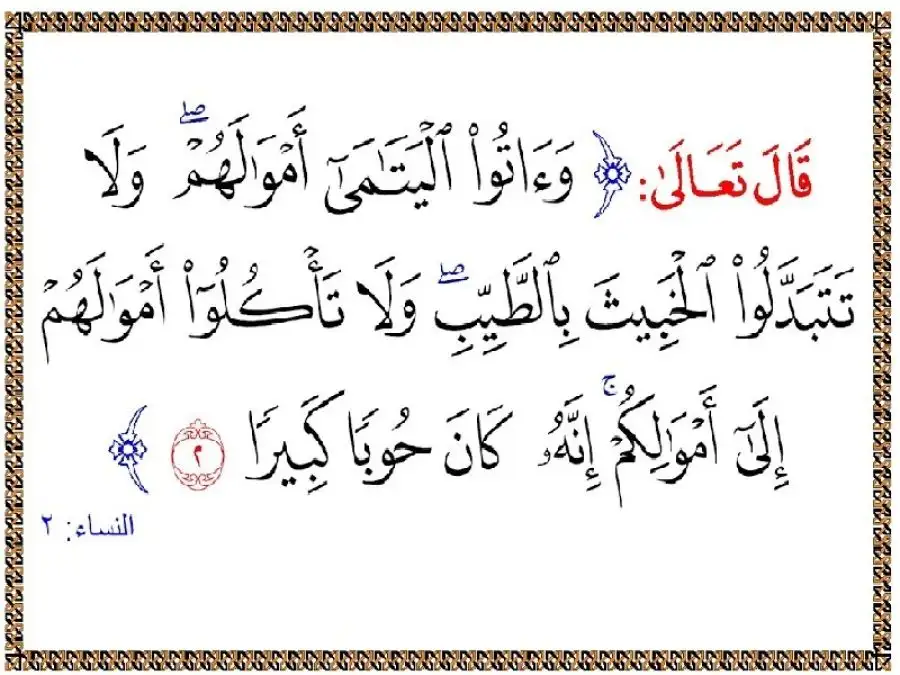 قَالَ تَعَالَىٰ: ﴿ وَءَاتُوا۟ ٱلْيَتَـٰمَىٰٓ أَمْوَٰلَهُمْ ۖ وَلَا
تَتَبَدَّلُوا۟ ٱلْخَبِيثَ بِٱلطَّيِّبِ ۖ وَلَا تَأْكُلُوٓا۟ أَمْوَٰلَهُمْ
إِلَىٰٓ أَمْوَٰلِكُمْ ۚ إِنَّهُۥ كَانَ حُوبًا كَبِيرًا ٢ ﴾
النساء: ٢